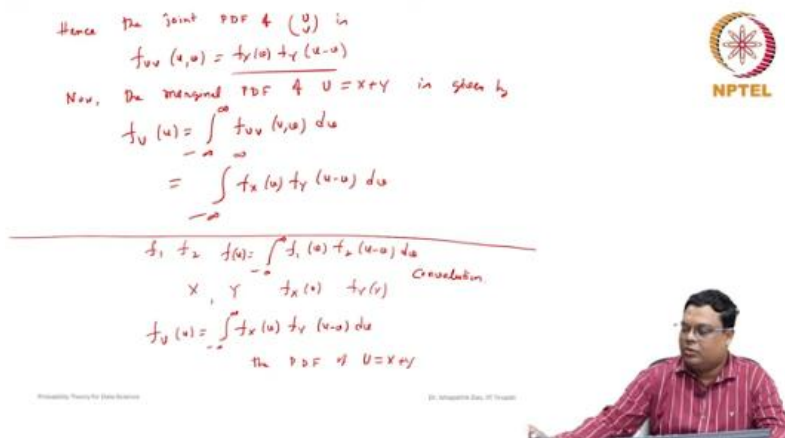 Hence the joint PDF of (U V) is
f_UV (u,v) = f_X(v) f_Y (u-v)
Now, the marginal PDF of U = X+Y is given by
f_U (u) = ∫_{-∞}^{∞} f_UV (u,v) dv
= ∫_{-∞}^{∞} f_X (v) f_Y (u-v) dv
f_1 f_2 f(u) = ∫_{-∞}^{∞} f_1 (v) f_2 (u-v) dv
Convolution.
X, Y f_X(x) f_Y(y)
f_U (u) = ∫_{-∞}^{∞} f_X (v) f_Y (u-v) dv
the PDF of U = X+Y
NPTEL
Probability Theory for Data Science